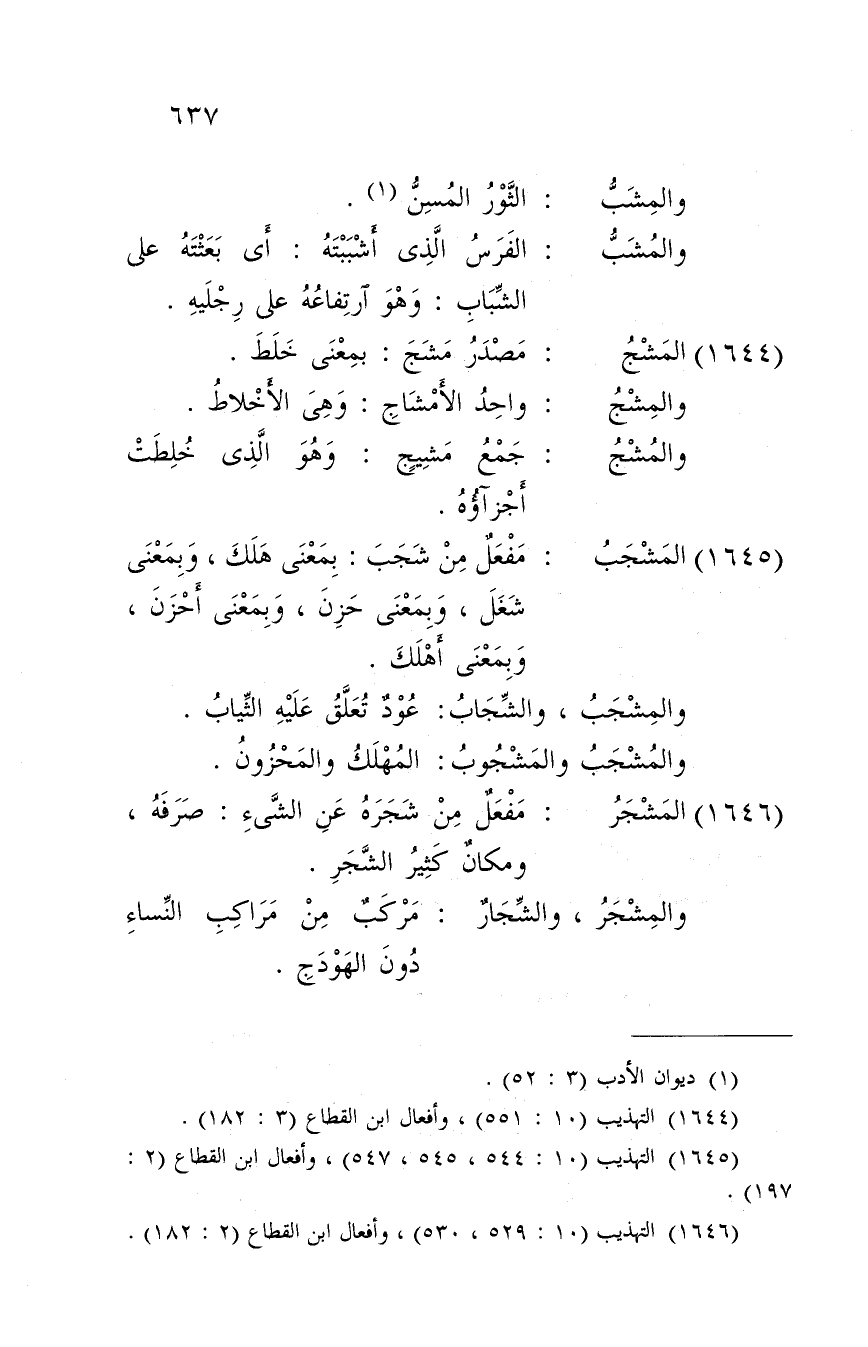 ٦٣٧
والمِشَبُّ : الثَّوْرُ المُسِنُّ (١) .
والمُشَبُّ : الفَرَسُ الَّذِى أَشْبَبْتَهُ : أَى بَعَثْتَهُ على
الشِّبَابِ : وَهْوَ ٱرتِفاعُهُ على رِجْلَيهِ .
(١٦٤٤) المَشْجُ : مَصْدَرُ مَشَجَ : بمِعْنَى خَلَطَ .
والمِشْجُ : واحِدُ الأَمْشَاجِ : وَهِىَ الأَخْلاطُ .
والمُشْجُ : جَمْعُ مَشِيجٍ : وَهُوَ الَّذِى خُلِطَتْ
أَجْزآؤُهُ .
(١٦٤٥) المَشْجَبُ : مَفْعَلٌ مِنْ شَجَبَ : بِمَعْنَى هَلَكَ ، وَبِمَعْنَى
شَغَلَ ، وَبِمَعْنَى حَزِنَ ، وَبِمَعْنَى أَحْزَنَ ،
وَبِمَعْنَى أَهْلَكَ .
والمِشْجَبُ ، والشِّجَابُ : عُوْدٌ تُعَلَّقُ عَلَيْهِ الثِّيابُ .
والمُشْجَبُ والمَشْجُوبُ : المُهْلَكُ والمَحْزُونُ .
(١٦٤٦) المَشْجَرُ : مَفْعَلٌ مِنْ شَجَرَهُ عَنِ الشَّىءِ : صَرَفَهُ ،
ومكانٌ كَثِيرُ الشَّجَرِ .
والمِشْجَرُ ، والشِّجَارٌ : مَرْكَبٌ مِنْ مَرَاكِبِ النِّساءِ
دُونَ الهَوْدَجِ .
(١) ديوان الأدب (٣ : ٥٢) .
(١٦٤٤) التهذيب (١٠ : ٥٥١) ، وأفعال ابن القطاع (٣ : ١٨٢) .
(١٦٤٥) التهذيب (١٠ : ٥٤٤ ، ٥٤٥ ، ٥٤٧) ، وأفعال ابن القطاع (٢ :
١٩٧) .
(١٦٤٦) التهذيب (١٠ : ٥٢٩ ، ٥٣٠) ، وأفعال ابن القطاع (٢ : ١٨٢) .